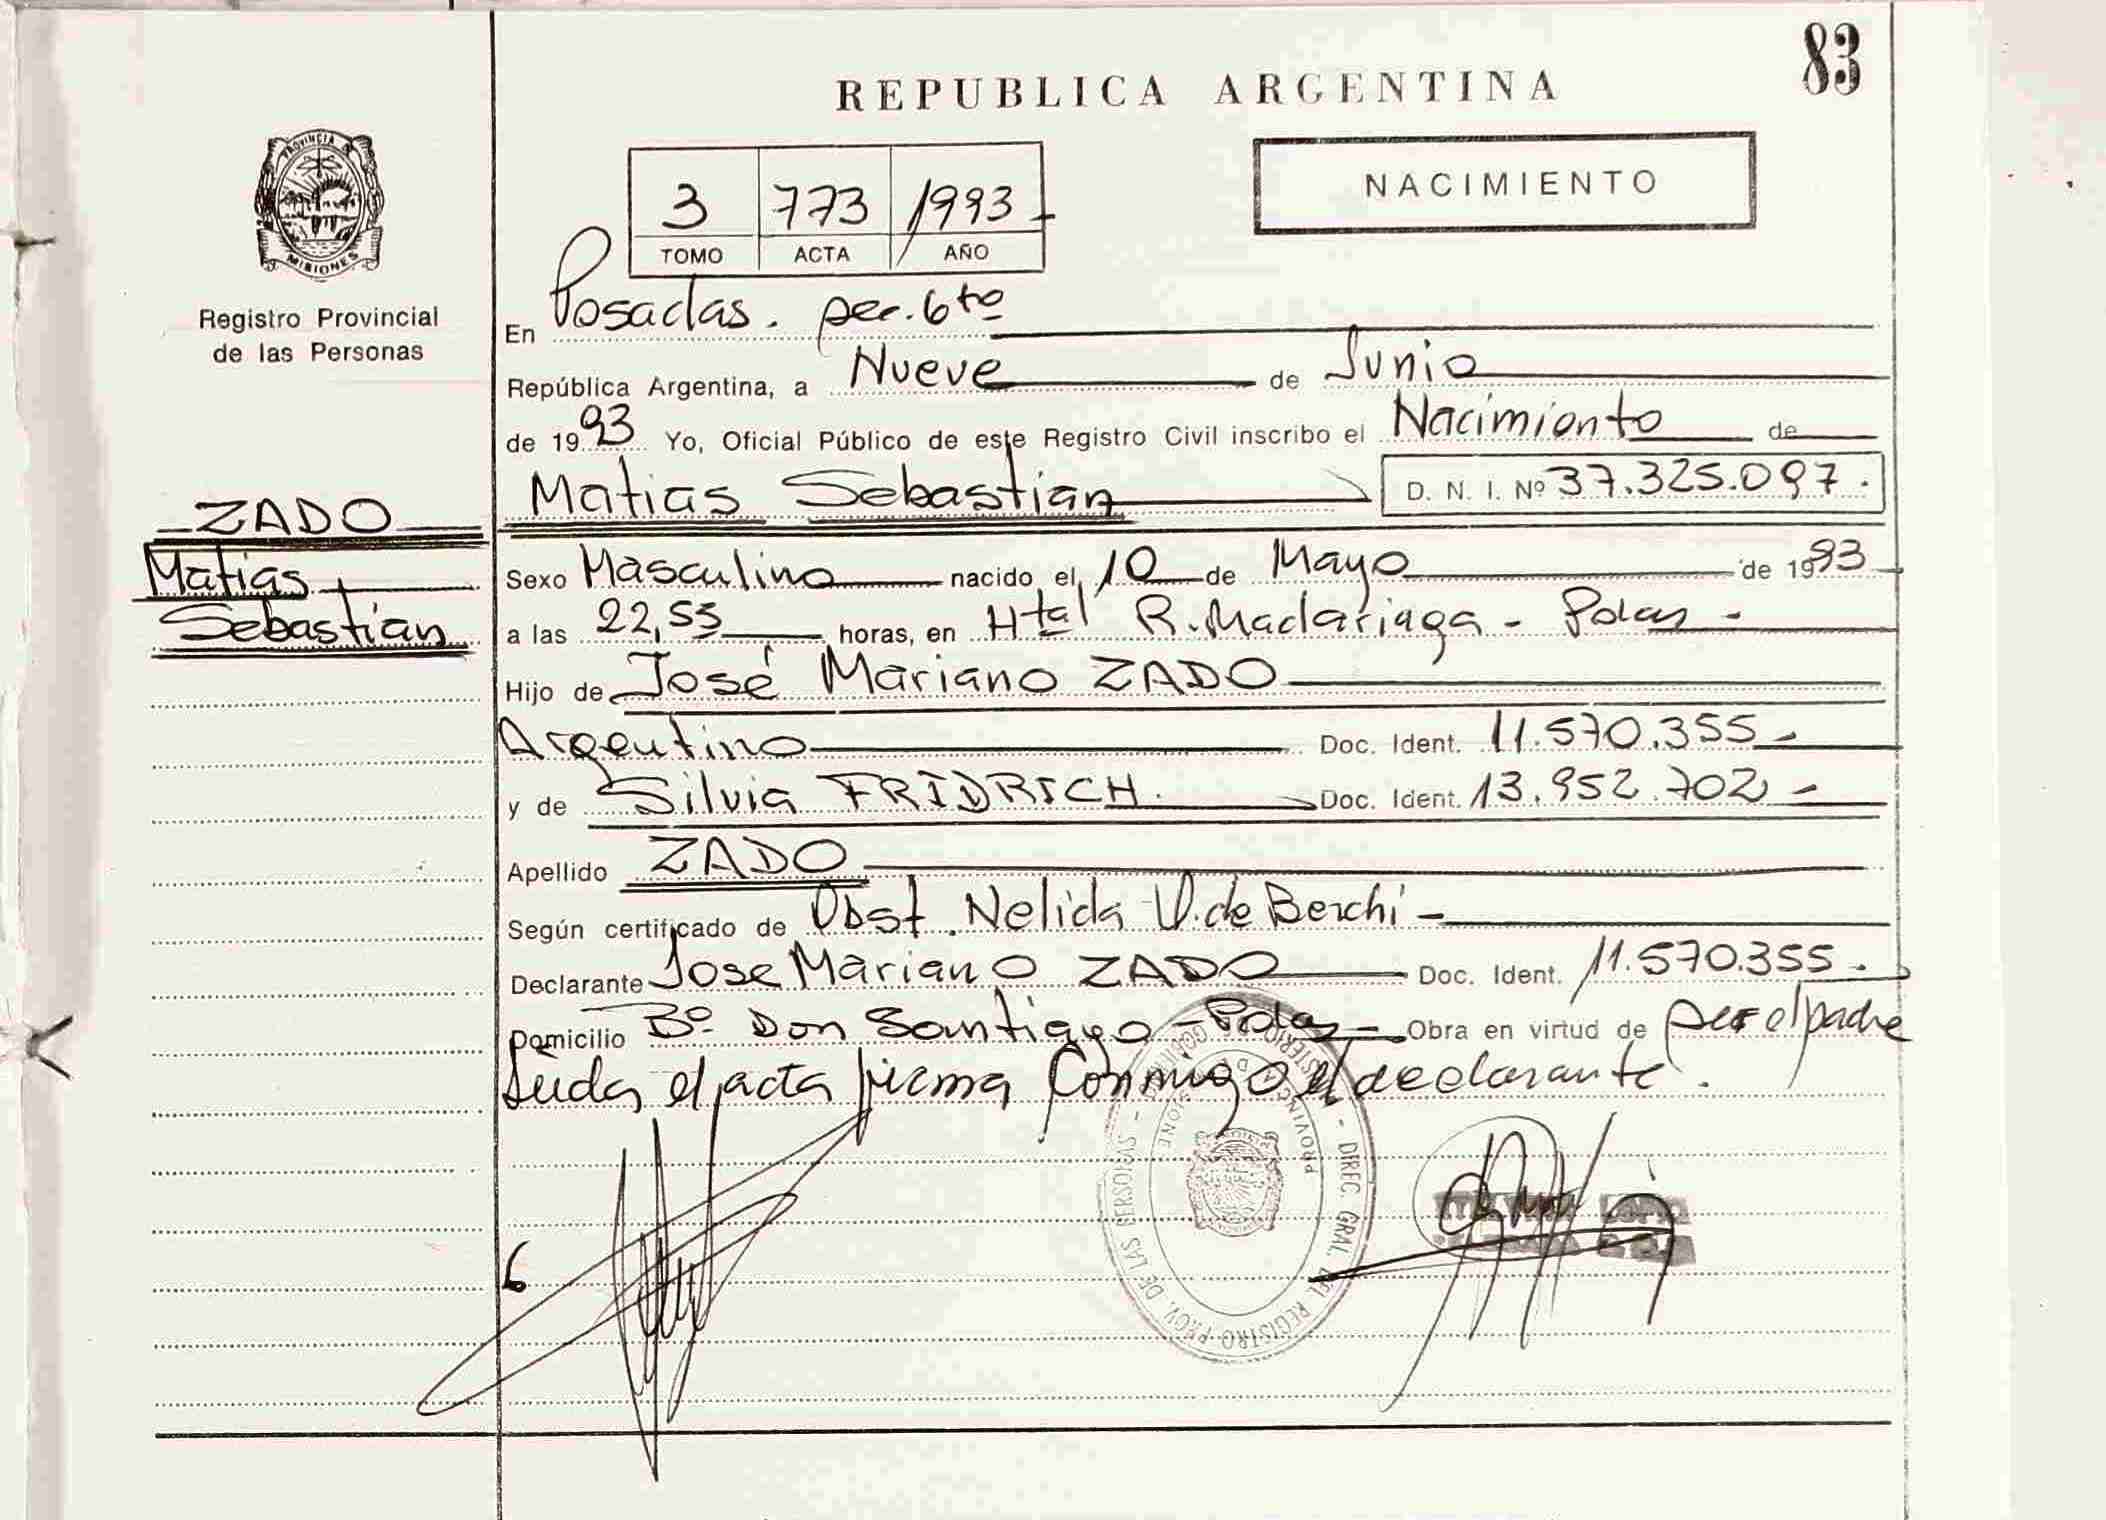 83
REPUBLICA ARGENTINA
PROVINCIA DE
MISIONES
Registro Provincial
de las Personas
NACIMIENTO
3 773 1993
TOMO ACTA AÑO
En Posadas. sec. 6to
República Argentina, a Nueve de Junio
de 1993 Yo, Oficial Público de este Registro Civil inscribo el Nacimiento de
Matias Sebastián D. N. I. Nº 37.325.097.
ZADO
Matias
Sebastián
Sexo Masculino nacido el 10 de Mayo de 1993
a las 22,53 horas, en Htal R. Madariaga - Pdas -
Hijo de José Mariano ZADO
Argentino Doc. Ident. 11.570.355 -
y de Silvia FRIDRICH. Doc. Ident. 13.952.702 -
Apellido ZADO
Según certificado de Obst. Nelida V. de Berchi -
Declarante Jose Mariano ZADO Doc. Ident. 11.570.355.
Domicilio Bº Don Santiago - Pdas - Obra en virtud de ser el padre
Leida el acta firma conmigo el declarante.
DIREC. GRAL. DEL REGISTRO PROV. DE LAS PERSONAS -
PROVINCIA DE MISIONES